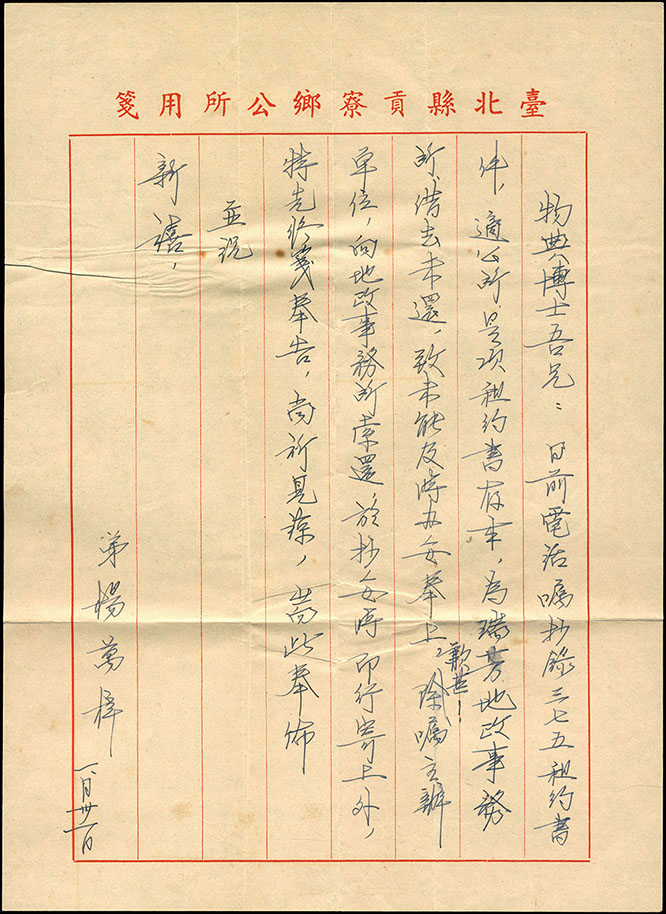 臺北縣貢寮鄉公所用箋
物典博士吾兄：日前電話囑抄錄三七五租約書
件，適公所是項租約書存本，為瑞芳地政事務
所借去未還，致未能及時办妥奉上，歉甚！除囑主辦
單位，向地政事務所索還，於抄妥后即行寄上外，
特先修箋奉告，尚祈見諒，耑此奉佈
並祝
新禧，
弟楊萬
一月卅一日